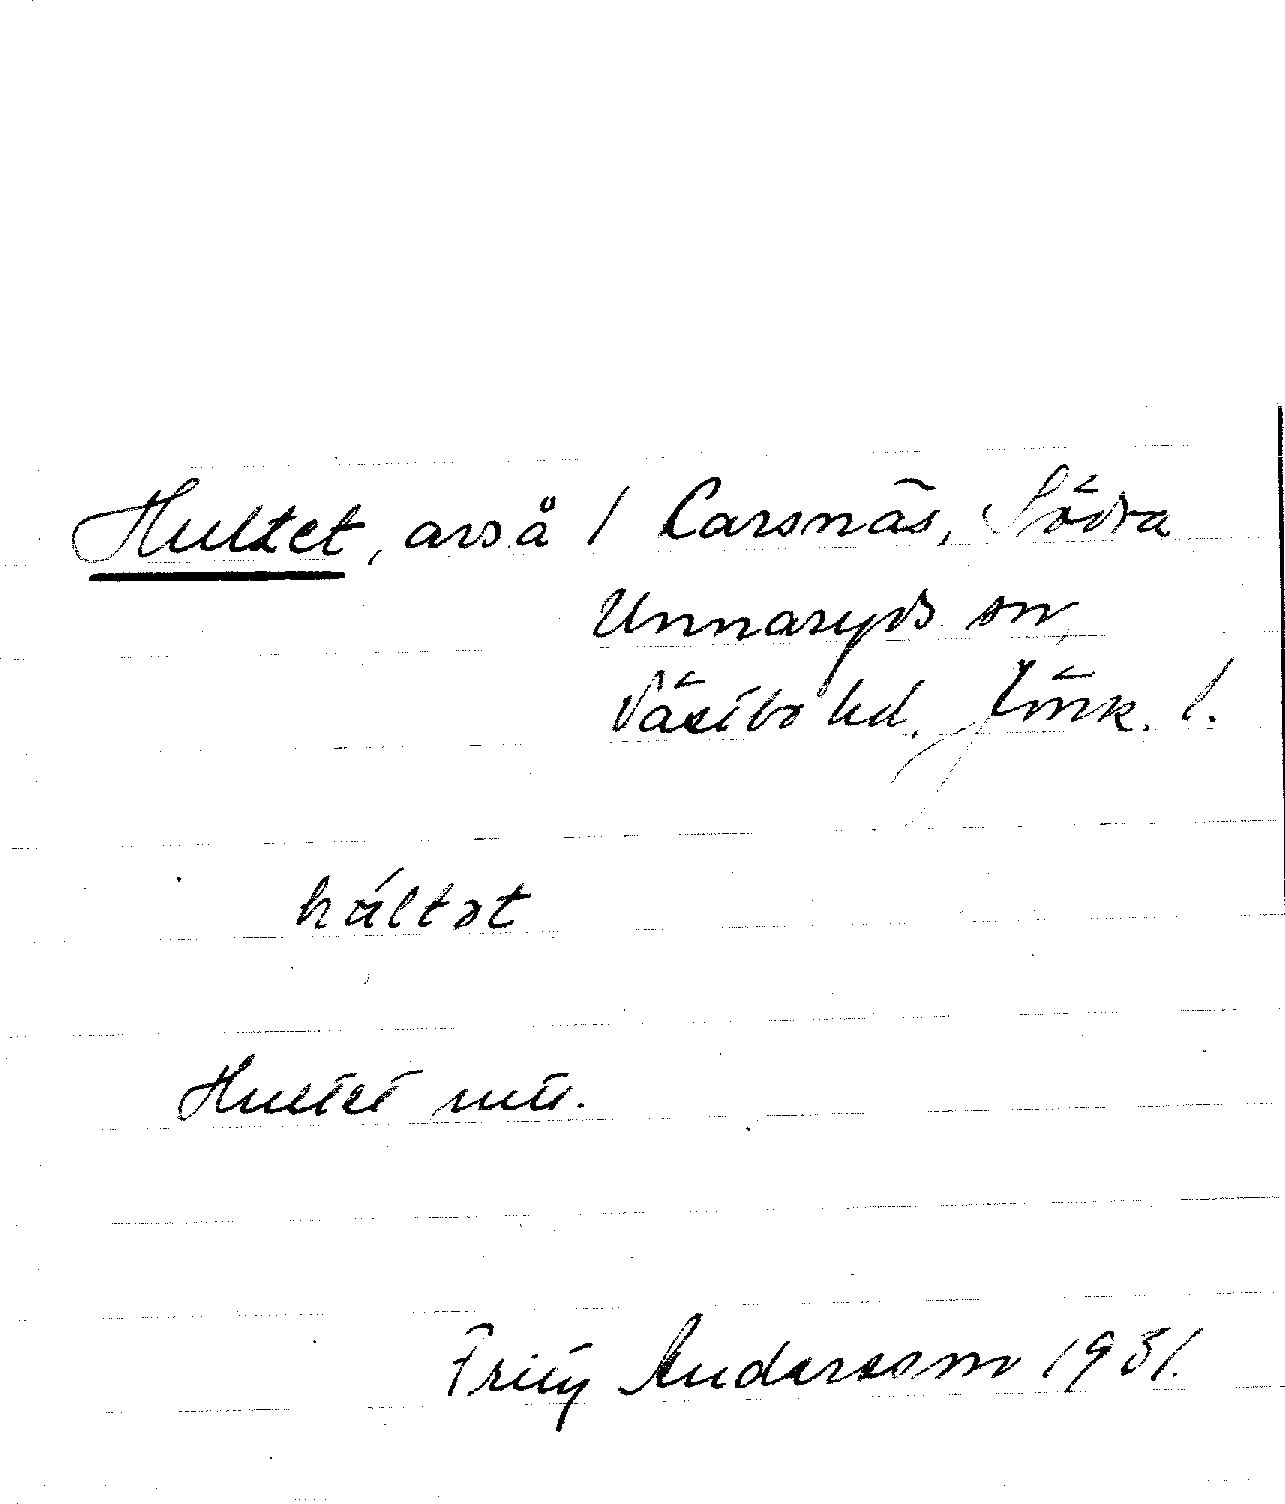 Hultet, avs å 1 Carsnäs, Södra
Unnaryds sn,
Västbo hd. Jönk. l.
húltət
Hultet
Andersson 1931.